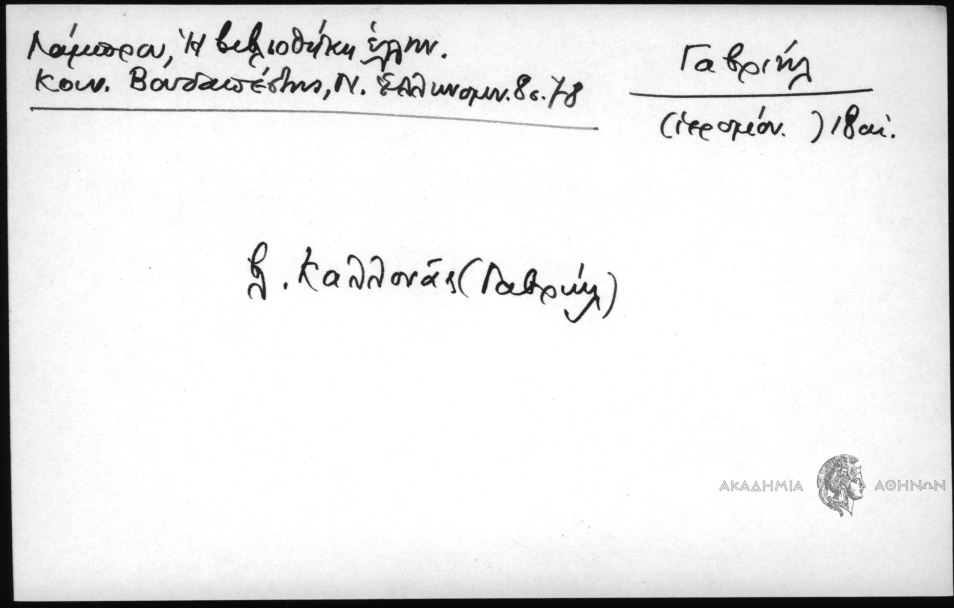 Λάμπρου, Ἡ βιβλιοθήκη ἑλλην.
Κοιν. Βουδαπέστης, Ν. Ἑλληνομν. 8 σ. 78
Γαβριήλ
(ἱερομόν. ) 18 αἰ.
βλ. Καλλονᾶς (Γαβριήλ)
ΑΚΑΔΗΜΙΑ ΑΘΗΝΩΝ